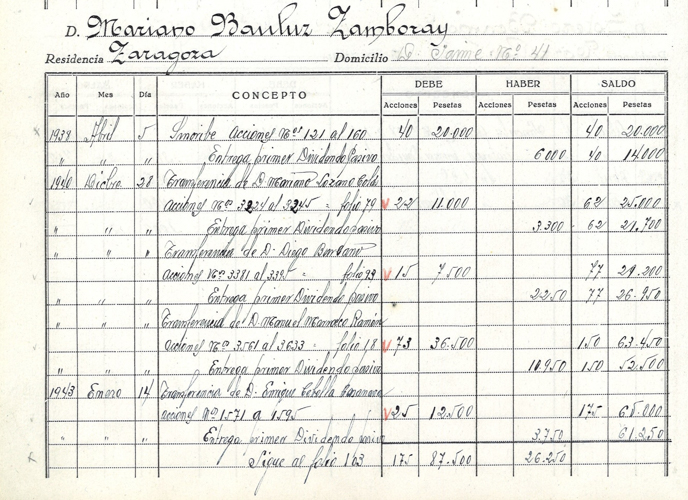 D. Mariano Bauluz Zamboray
Residencia Zaragoza Domicilio D. Jaime Nº 41
DEBE HABER SALDO
Año Mes Día CONCEPTO Acciones Pesetas Acciones Pesetas Acciones Pesetas
1939 Abril 5 Suscribe acciones Nos 121 al 160 40 20.000 40 20.000
" " " Entrega primer Dividendo Pasivo 6.000 40 14.000
1940 Dicbre 28 Transferencia de D. Mariano Lozano
acciones Nos 3224 al 3245 = folio 79 22 11.000 62 25.000
" " " Entrega primer Dividendo pasivo 3.300 62 21.700
" " " Transferencia de D. Diego
acciones Nos 3381 al 3395 = folio 99 15 7.500 77 29.200
" " " Entrega primer Dividendo pasivo 2250 77 26.950
" " " Transferencia de D. Manuel Marraco Ramón
acciones Nos 3561 al 3633 = folio 18 73 36.500 150 63.450
" " " Entrega primer Dividendo pasivo 10.950 150 52.500
1943 Enero 14 Transferencia de D. Enrique Cebolla
acciones Nos 1571 a 1595 25 12.500 175 65.000
" " " Entrega primer Dividendo pasivo 3.750 61.250
Sigue al folio 163 175 87.500 26.250